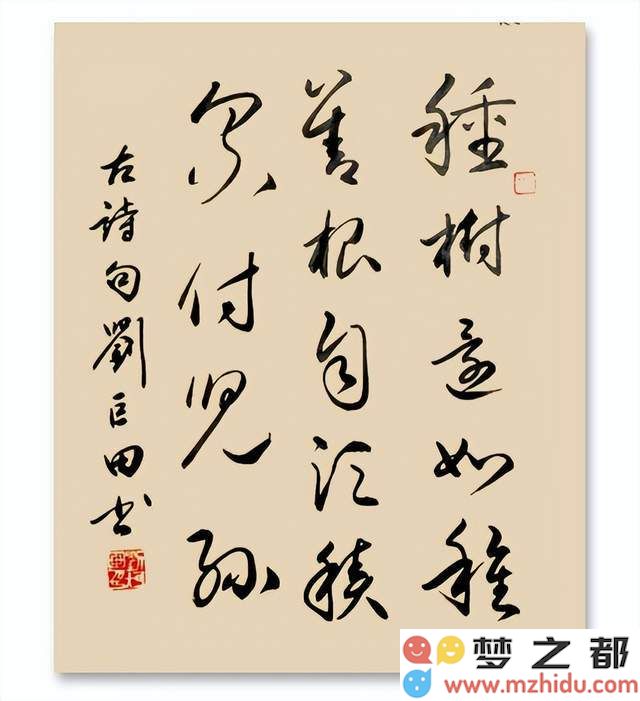 種樹還如種
善根自須積
累付兒孫
古詩句劉巨田书
梦之都
www.mzhidu.com